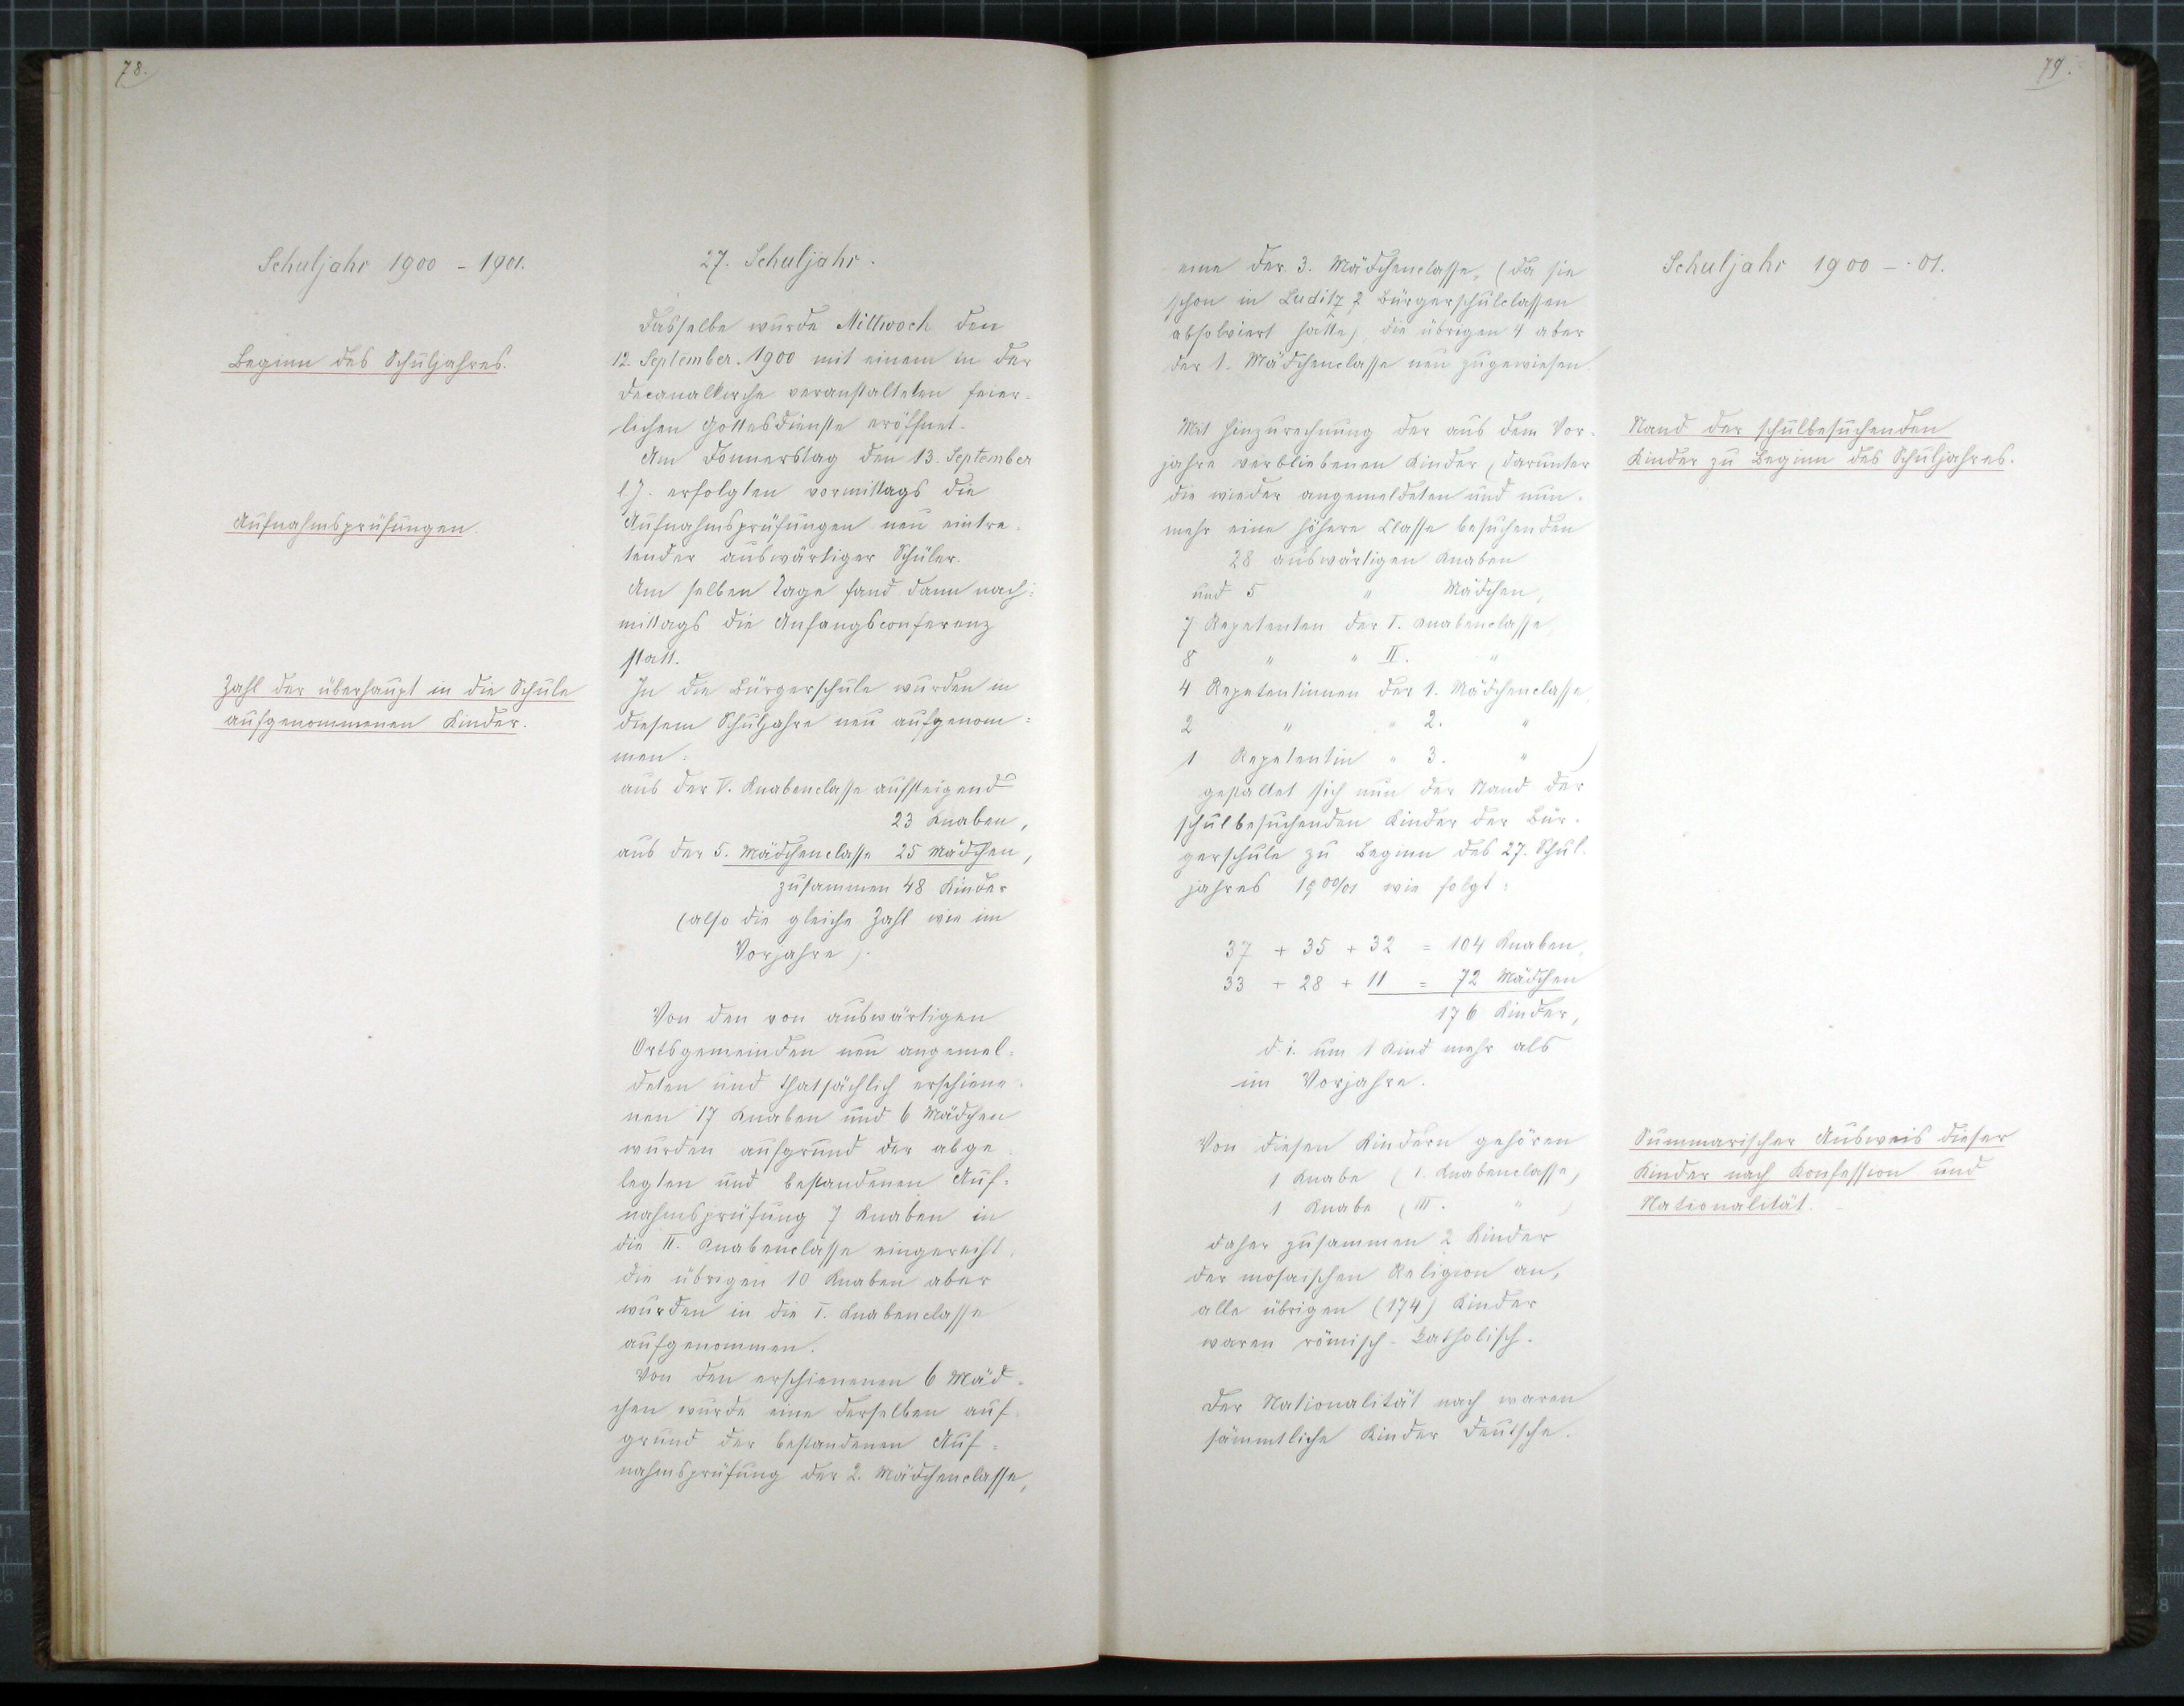 78.
Schuljahr 1900 - 1901.
Beginn des Schuljahres.
Aufnahmsprüfungen.
Zahl der überhaupt in die Schule
aufgenommenen Kinder.
27. Schuljahr.
Dasselbe wurde Mittwoch den
12. September. 1900 mit einem in der
Decanalkirche veranstalteten feier=
lichen Gottesdienste eröffnet.
Am Donnerstag den 13. September
l. J. erfolgten vormittags die
Aufnahmsprüfungen neu eintre=
tender auswärtiger Schüler.
Am selben Tage fand dann nach=
mittags die Anfangsconferenz
statt.
In die Bürgerschule wurden in
diesem Schuljahre neu aufgenom=
men:
aus der V. Knabenclasse aufsteigend
23 Knaben,
aus der 5. Mädchenclasse 25 Mädchen,
zusammen 48 Kinder
(also die gleiche Zahl wie im
Vorjahre).
Von den von auswärtigen
Ortsgemeinden neu angemel=
deten und thatsächlich erschiene=
nen 17 Knaben und 6 Mädchen
wurden aufgrund der abge=
legten und bestandenen Auf=
nahmsprüfung 7 Knaben in
die II. Knabenclasse eingereiht,
die übrigen 10 Knaben aber
wurden in die I. Knabenclasse
aufgenommen.
Von den erschienenen 6 Mäd=
chen wurde eine derselben auf=
grund der bestandenen Auf=
nahmsprüfung der 2. Mädchenclasse,
79.
eine der 3. Mädchenclasse, (da sie
schon in Luditz 2 Bürgerschulclassen
absolviert hatte), die übrigen 4 aber
der 1. Mädchenclasse neu zugewiesen.
Mit Hinzurechnung der aus dem Vor=
jahre verbliebenen Kinder (darunter
die wieder angemeldeten und nun=
mehr eine höhere Classe besuchenden
28 auswärtigen Knaben
und 5 " Mädchen,
7 Repetenten der I. Knabenclasse,
8 " " II. "
4 Repetentinnen der 1. Mädchenclasse,
2 " " 2. "
1 Repetentin " 3. " )
gestaltet sich nun der Stand der
schulbesuchenden Kinder der Bür=
gerschule zu Beginn des 27. Schul=
jahres 1900/01 wie folgt:
37 + 35 + 32 = 104 Knaben,
33 + 28 + 11 = 72 Mädchen
176 Kinder,
d. i. um 1 Kind mehr als
im Vorjahre.
Von diesen Kindern gehören
1 Knabe (I. Knabenclasse)
1 Knabe (III. " )
daher zusammen 2 Kinder
der mosaischen Religion an,
alle übrigen (174) Kinder
waren römisch-katholisch.
Der Nationalität nach waren
sämmtliche Kinder Deutsche.
Schuljahr 1900 - 01.
Stand der schulbesuchenden
Kinder zu Beginn des Schuljahres.
Summarischer Ausweis dieser
Kinder nach Konfession und
Nationalität.